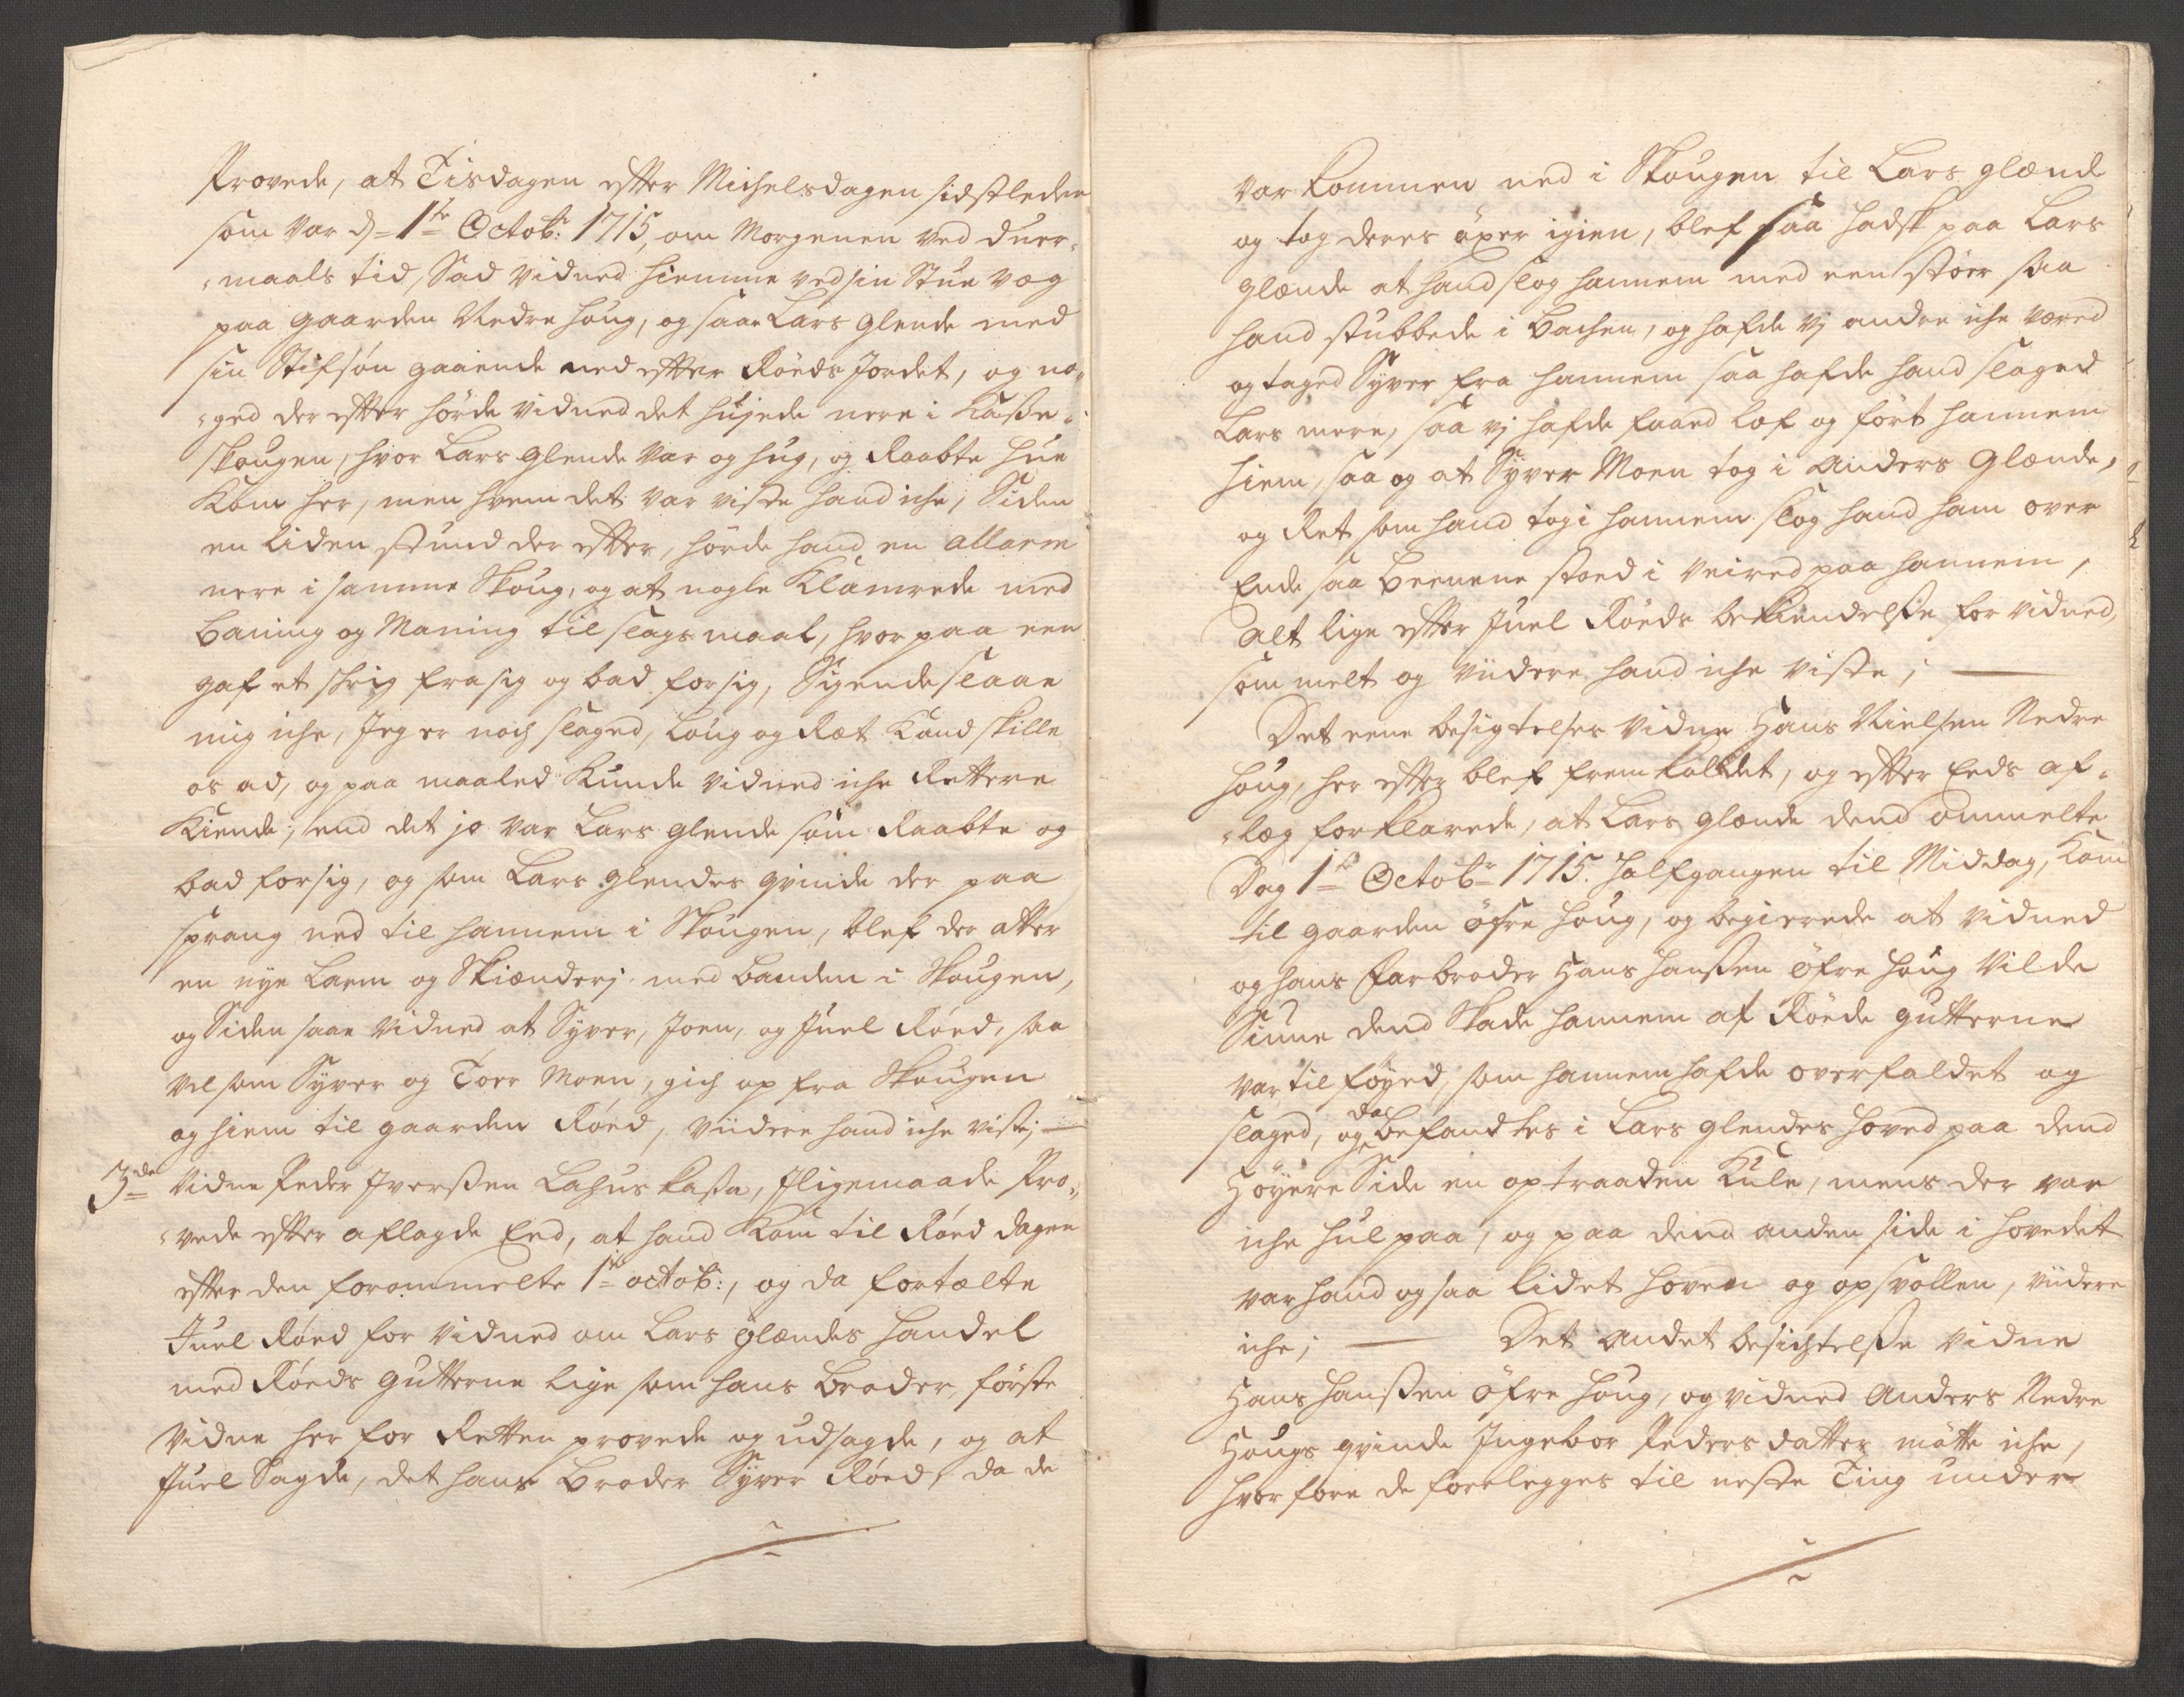 Provede, at Tisdagen efter Michelsdagen sidstleden
som var d: 1te Octob: 1715, om Morgenen ved duer-
maals tid, Sad vidned hiemme ved sin Stue væg
paa gaarden Nedre houg, og saae Lars glende med
sin Stifsøn gaaende ned efter Röeds Jordet, og no-
ged der efter hörde vidned det hujede nere i Kaße-
skougen, hvor Lars glende var og hug, og Raabte hue
Kom her, men hvem det var viste hand iche, Siden
en liden stund der efter, hörde hand en allarm
nere i samme Skoug, og at nogle Klamrede med
Baning og Maning til slagsmaal, hvor paa een
gaf et schrig fra sig og bad for sig, Sigende slaae
mig iche, Jeg er noch slaged, Loug og Ræt Kand skille
os ad, og paa maaled Kunde vidned iche Rettere
Kiende, end det jo var Lars glende som Raabte og
bad for sig, og som Lars glendes qvinde der paa
sprang ned til hannem i Skougen, blef der atter
en nye Larm og Skiænderj med banden i Skougen,
og Siden saae vidned at Syver, Joen, og Juel Röed, saa
vel som Syver og Toer Moen, gich op fra Skougen
og hiem til gaarden Röed, viidere hand iche viste; —
3de Vidne Peder Iverßen Lahuskasa, Iligemaade Pro-
vede efter aflagde Eed, at hand Kom til Röed dagen
efter den forommelte 1te octob:, og da fortælte
Juel Röed for vidned om Lars glændes handel
med Röeds gutterne lige som hans Broder, förste
Vidne her for Retten provede og udsagde, og at
Juel Sagde, det hans Broder Syver Röed, da de
var kommen ned i Skougen til Lars glænde
og tog deres öxer igien, blef saa hadsk paa Lars
glænde at hand slog hannem med een stör saa
hand stubbede i Bachen, og hafde vj andre iche været
og taged Syver fra hannem saa hafde hand slaged
Lars mere, saa vj hafde faaed lof og fört hannem
hiem, saa og at Syver Moen tog i Anders Glænde,
og Ret som hand tog i hannem slog hand ham over
Ende saa Beenene stoed i veired paa hannem,
alt lige efter Juel Röeds bekiendelße for vidned,
som melt og viidere hand iche viste; —
Det eene besigtelses vidne Hans Nielsen Nedre
houg, her efter blef fremkaldet, og efter Eeds af-
læg forklarede, at Lars glænde dend ommelte
Dag 1te Octobr 1715. halfgangen til Middag, Kom
til gaarden öfre houg, og begierede at vidned
og hans farbroder Hans Hanßen öfre houg vilde
Siune dend Skade hannem af Röeds gutterne
var tilföyed, som hannem hafde overfaldet og
slaged, og da befandtes i Lars glendes hoved paa dend
Höyere Side en optraaden Kule, mens der var
iche hul paa, og paa dend anden side i hovedet
var hand og saa lidet hoven og opsvollen, viidere
iche; — Det andet besichtelße vidne
Hans Hanßen öfre houg, og vidned Anders Nedre
Hougs qvinde Ingebor Pedersdatter mötte iche,
hvorfore de forelegges til neste Ting under